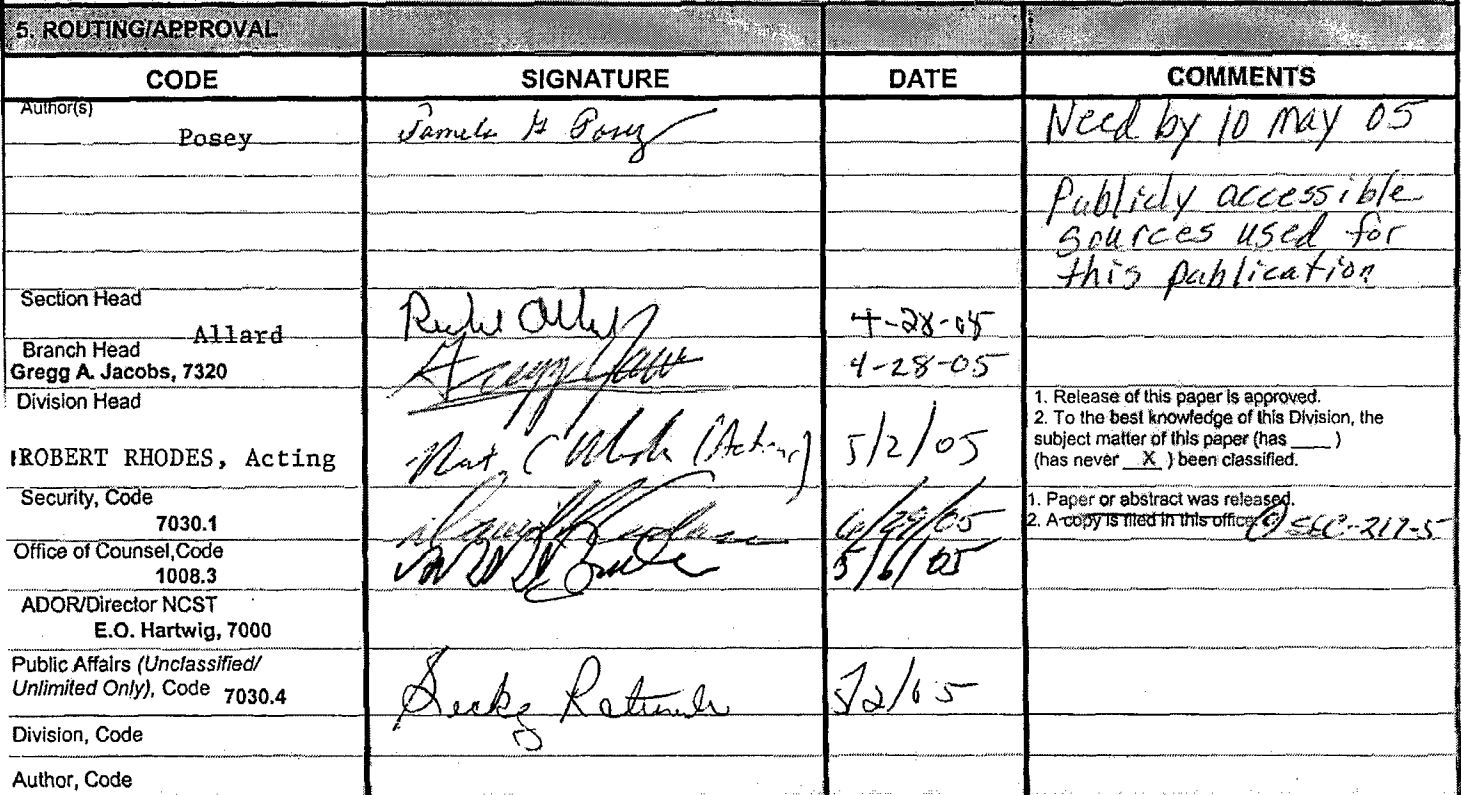 5. ROUTING/APPROVAL
CODE SIGNATURE DATE COMMENTS
Author(s)
Posey Pamela G Posey Need by 10 may 05
Publicly accessible
sources used for
this publication
Section Head
Allard 4-28-05
Branch Head
Gregg A. Jacobs, 7320 4-28-05
Division Head
ROBERT RHODES, Acting (Acting) 5/2/05
1. Release of this paper is approved.
2. To the best knowledge of this Division, the
subject matter of this paper (has ____ )
(has never X ) been classified.
Security, Code
7030.1 6/29/05
1. Paper or abstract was released.
2. A copy is filed in this office. SSC-217-5
Office of Counsel,Code
1008.3 5/6/05
ADOR/Director NCST
E.O. Hartwig, 7000
Public Affairs (Unclassified/
Unlimited Only), Code 7030.4 5/2/05
Division, Code
Author, Code